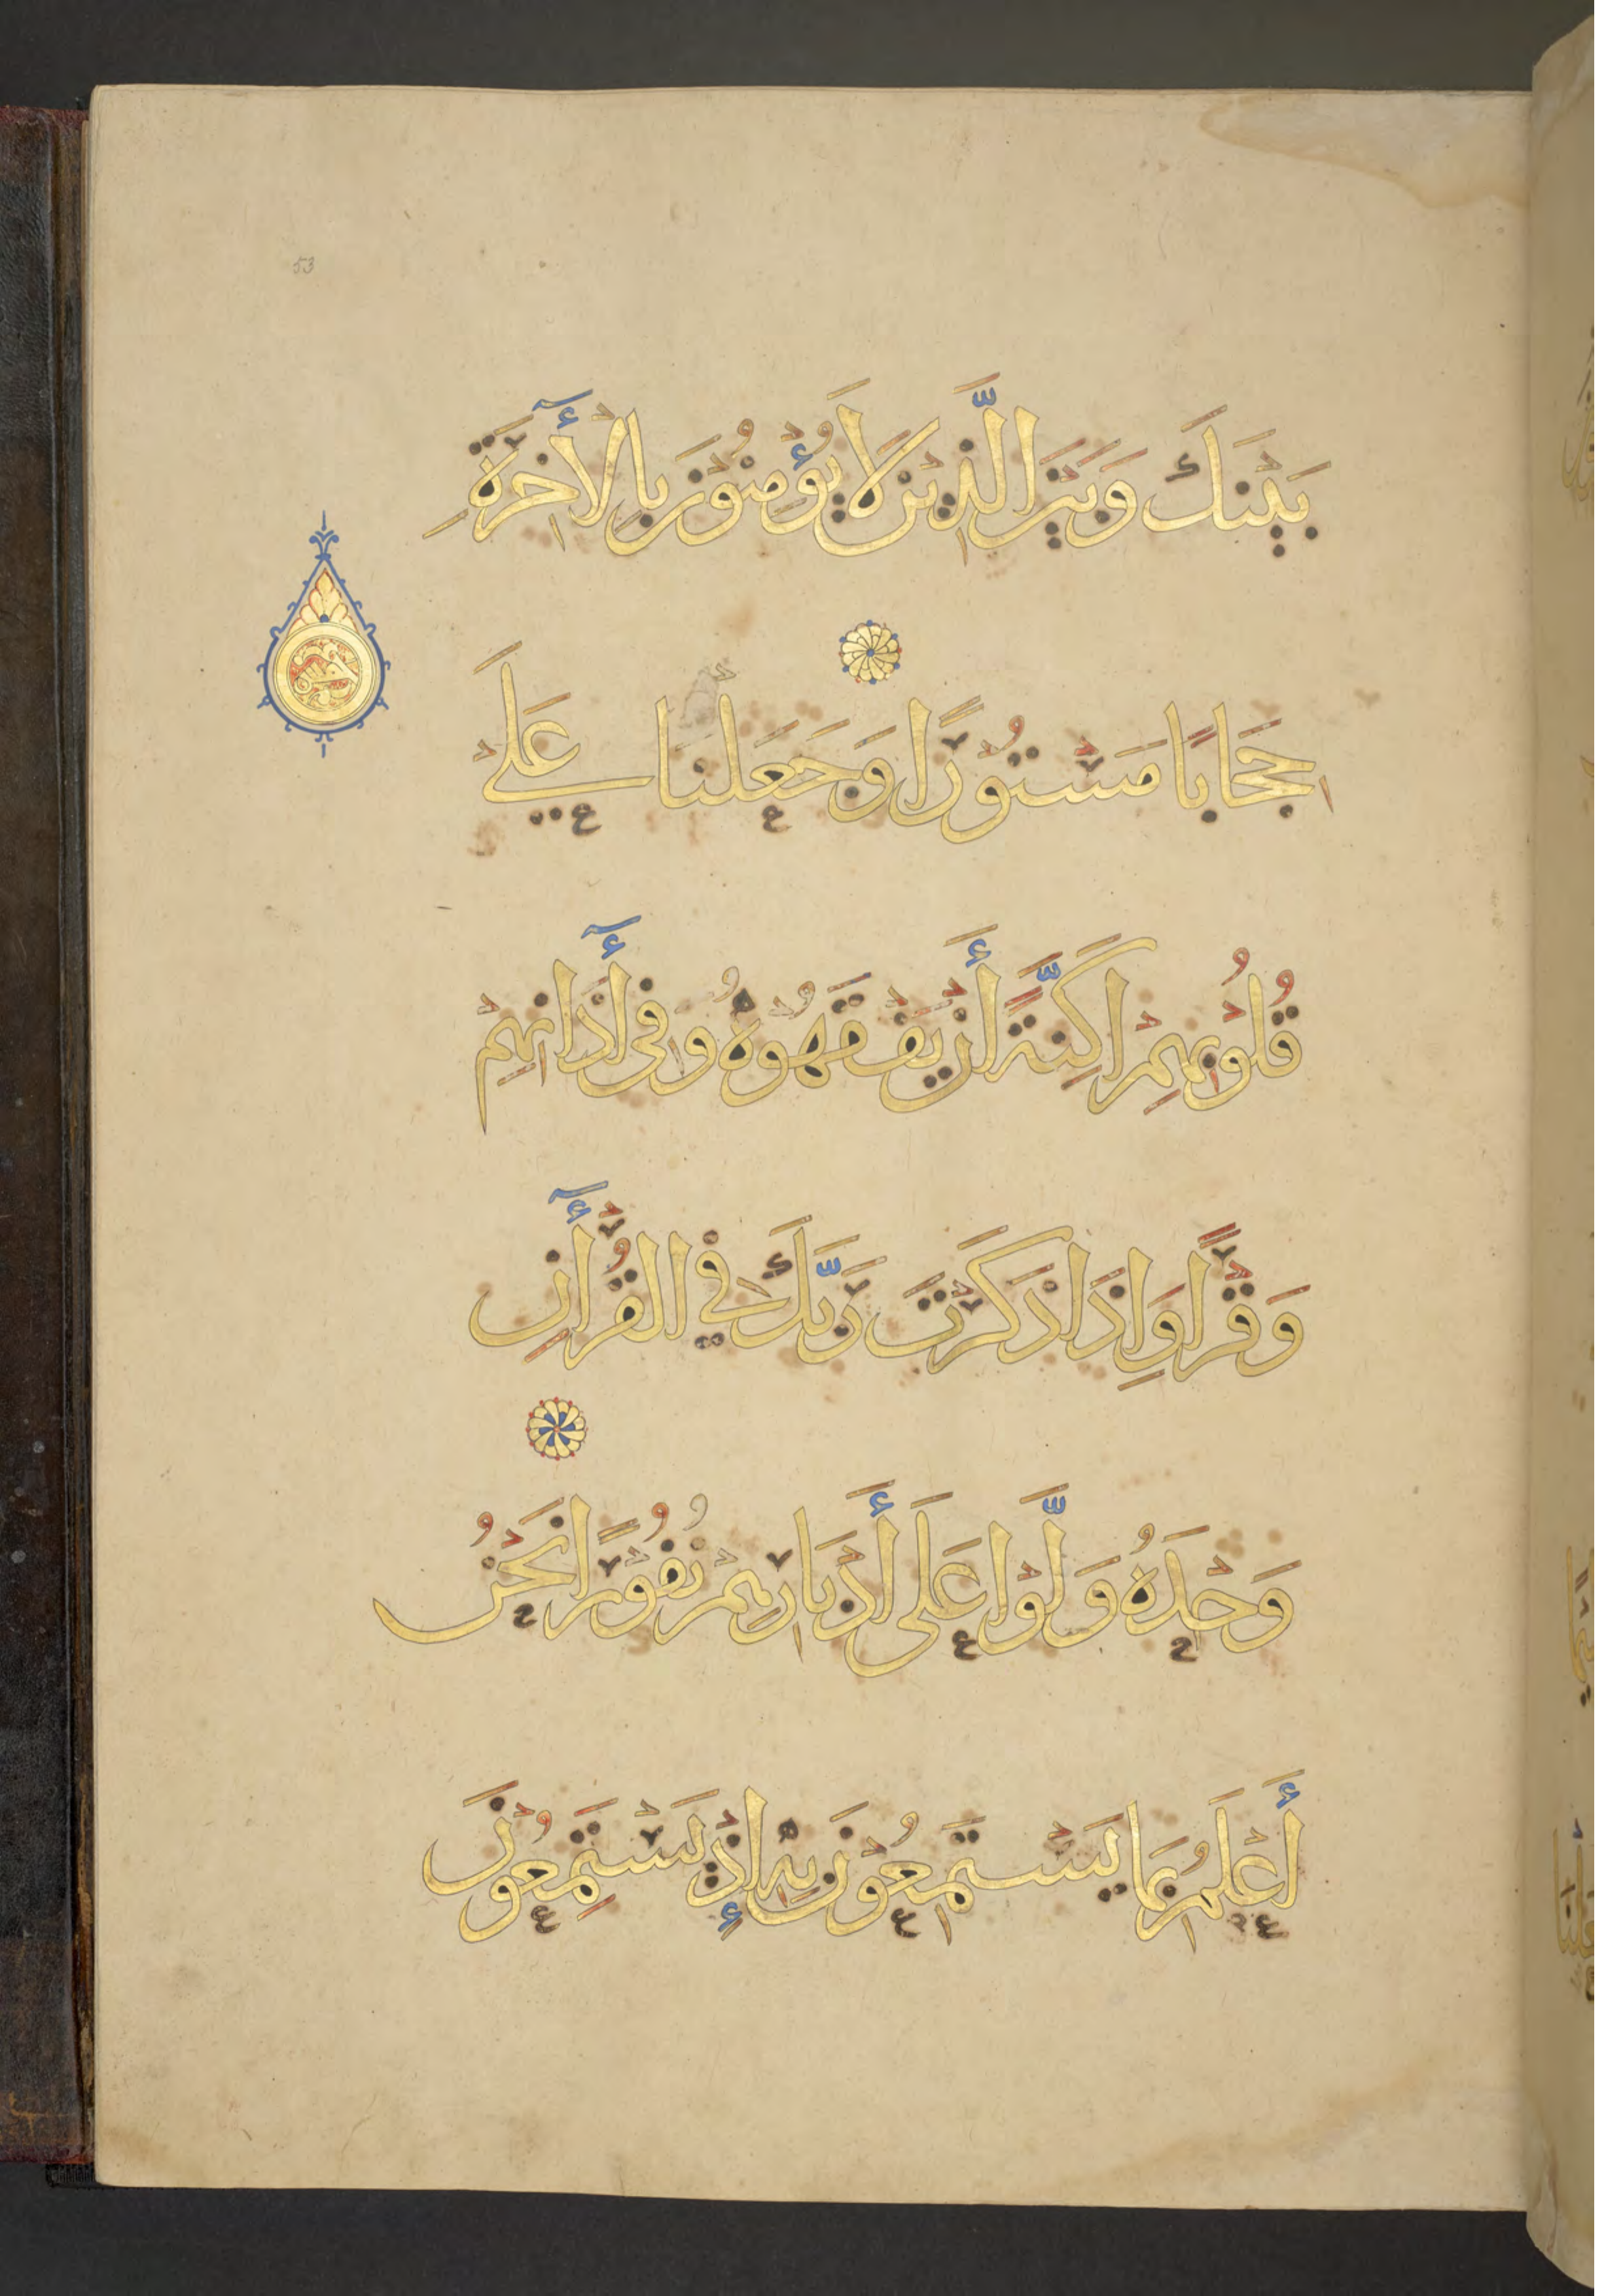 بَيْنَكَ وَبَيْنَ الَّذِيْنَ لَا يُؤْمِنُوْنَ بِالْأٓخِرَةِ
حِجَابًا مَسْتُوْرًا وَجَعَلْنَا عَلَىْ
قُلُوْبِهِمْ اَكِنَّةً أَنْ يَفْقَهُوْهُ وَفِى أٓذَانِهِمْ
وَقْرًا وَاِذَا ذَكَرْتَ رَبَّكَ فِي الْقُرْأٓنِ
وَحْدَهُ وَلَّوْا عَلَى أَدْبَارِهِمْ نُفُوْرًا نَحْنُ
أَعْلَمُ بِمَا يَسْتَمِعُوْنَ بِهِ إِذْ يَسْتَمِعُوْنَ
53